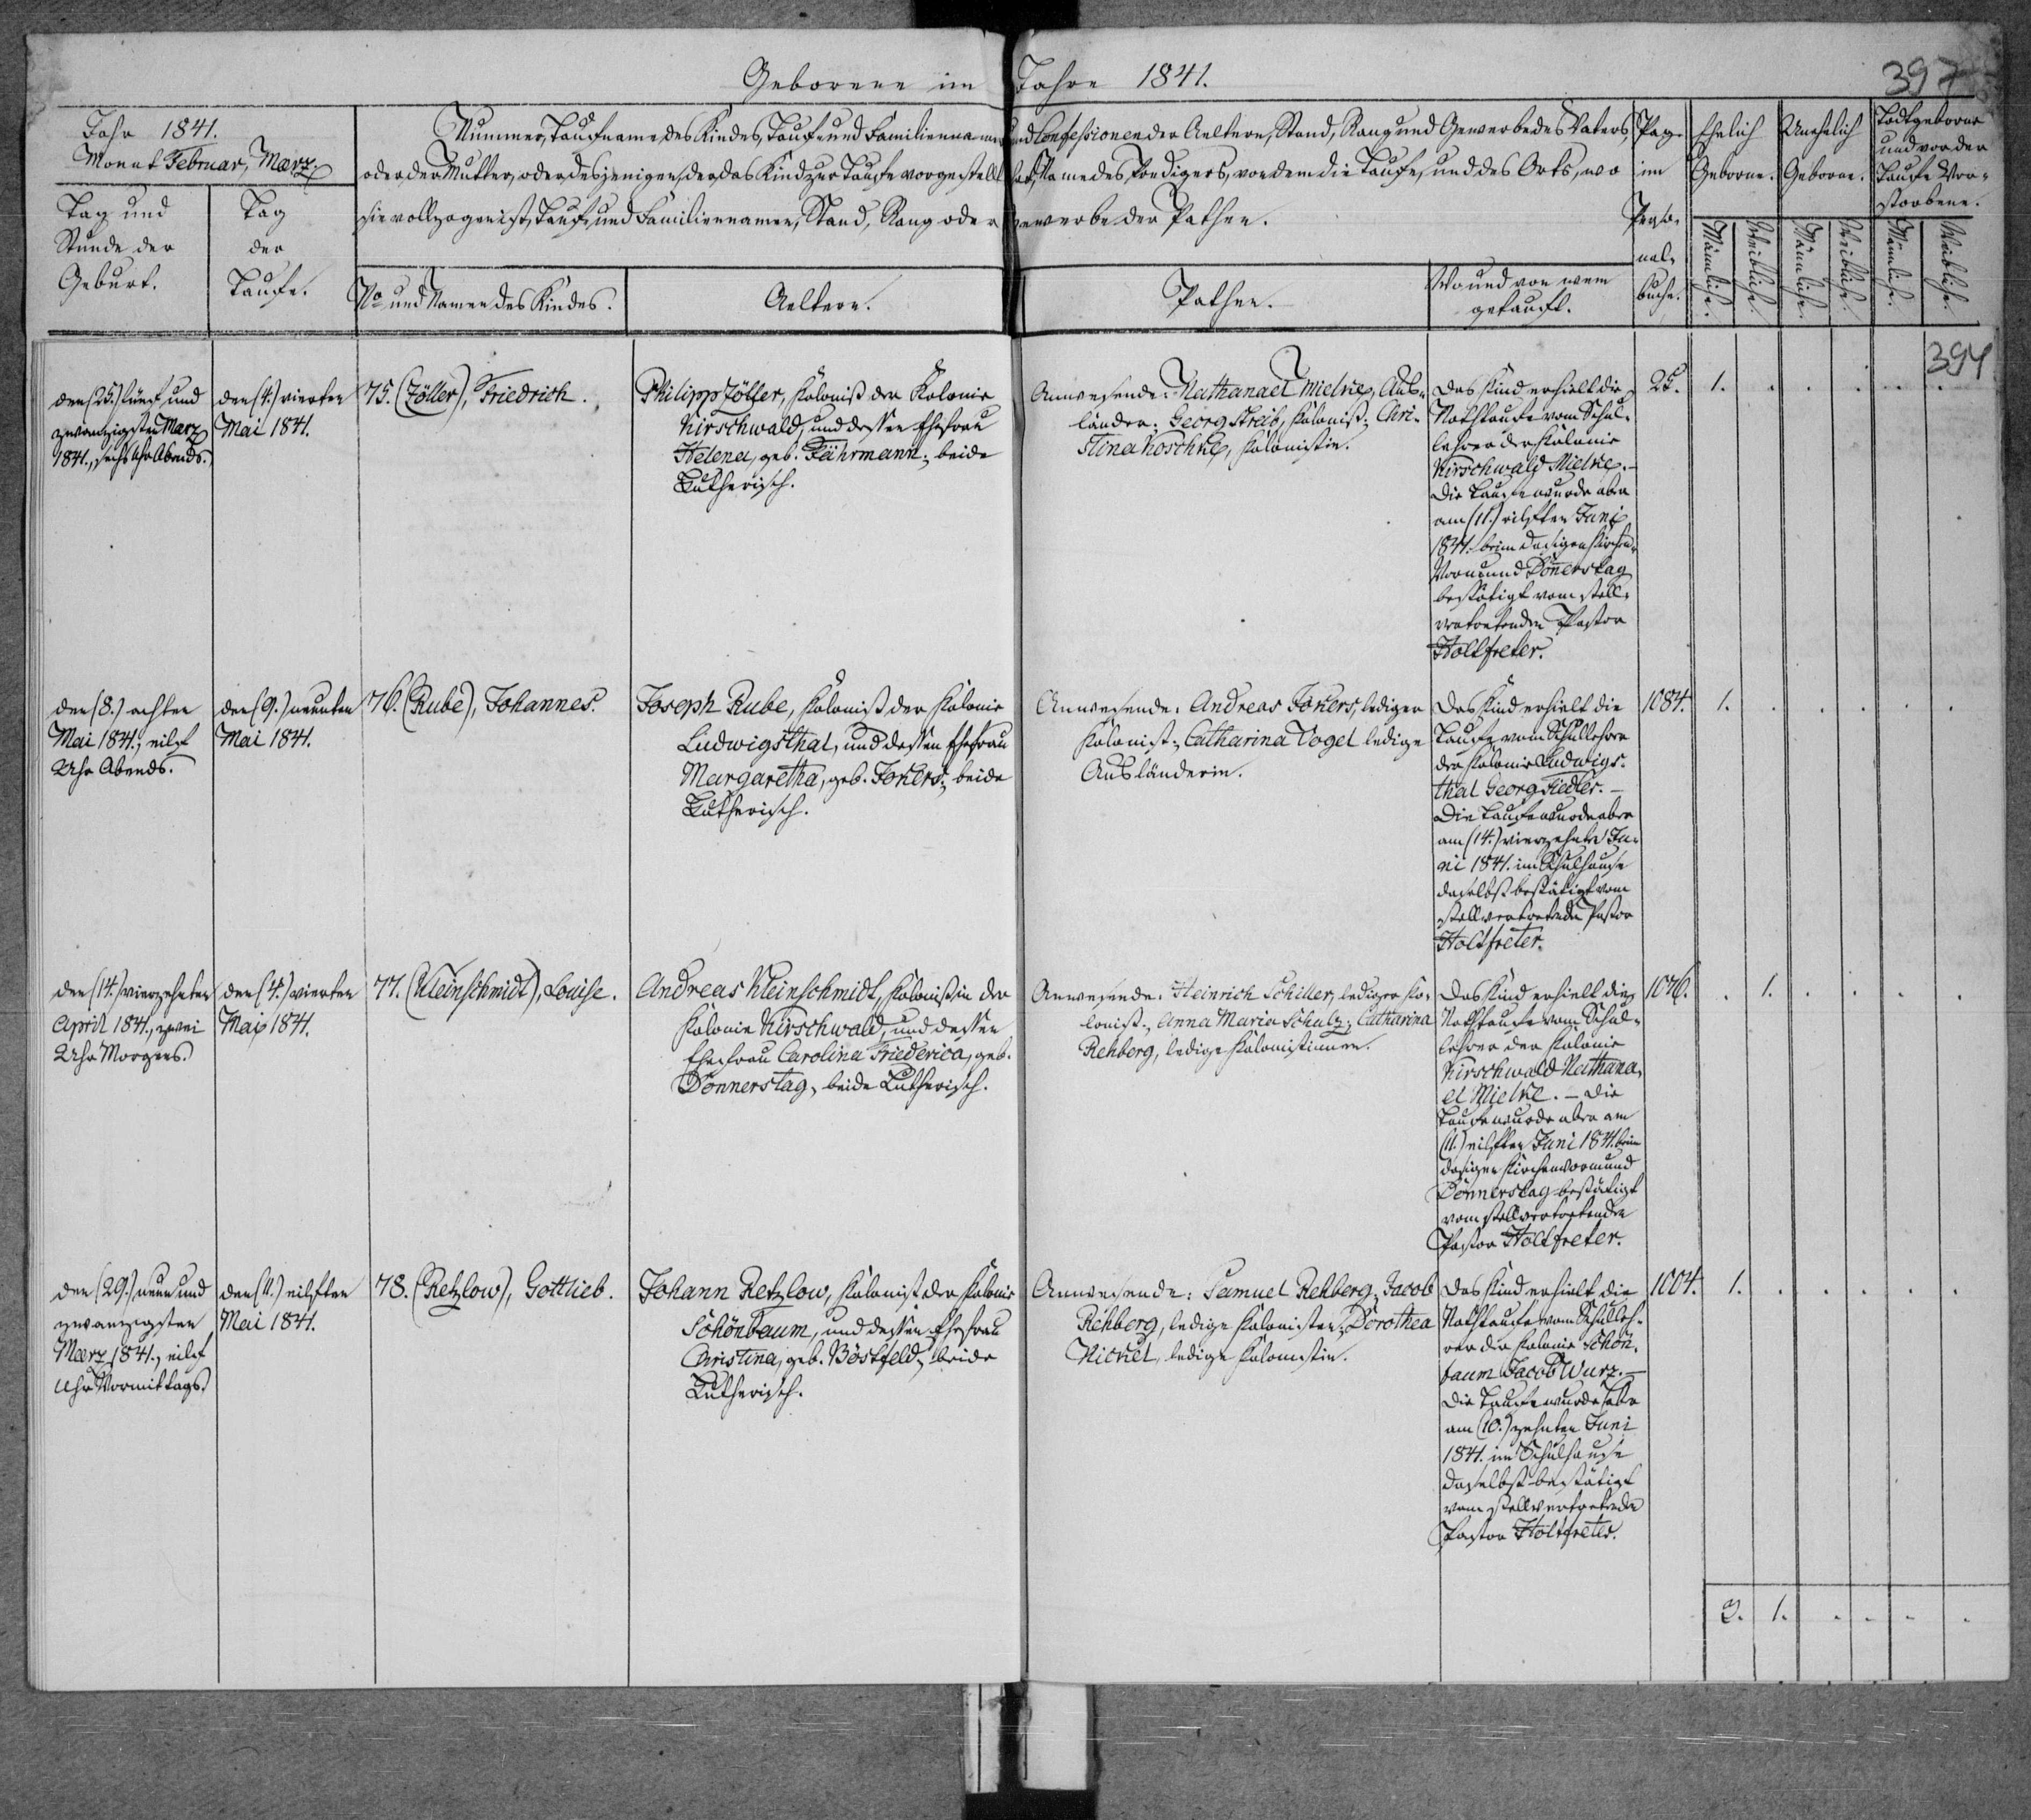 Geborene im Jahre 1841.
397
Jahr 1841.
Monat Februar, Maerz
Tag und
Stunde der
Geburt.
Tag
der
Taufe.
Nummer, Taufname des Kindes, Tauf- und Familienname und Confessionen der Aeltern, Stand, Rang und Gewerbe des Vaters,
oder der Mutter, oder desjenigen, der das Kind zur Taufe vorgestellt hat, Name des Predigers, von dem die Taufe, und des Orts, wo
sie vollzogen ist, Tauf- und Familiennamen, Stand, Rang oder Gewerbe der Pathen.
No und Namen des Kindes.
Aeltern.
Pathen.
Wo und von wem
getauft.
Pag.
im
Perso-
nal-
buche.
Ehelich
Geborne.
Unehelich
Geborne.
Todtgeborne
und vor der
Taufe Ver-
storbene.
Männliche.
Weibliche.
Männliche.
Weibliche.
Männliche.
Weibliche.
394
den (25.) fünf und
zwanzigsten Marz
1841., sechs Uhr Abends.
den (4.) vierten
Mai 1841.
75. (Zöller), Friedrich.
Philipp Zöller, Kolonist der Kolonie
Kirschwald, und dessen Ehefrau
Helena, geb. Fährmann; beide
Lutherisch.
Anwesende: Nathanael Mielke, Aus-
länder; Georg Streib, Kolonist; Chri-
stina Koschke, Kolonistin.
Das Kind erhielt die
Nothtaufe vom Schul-
lehrer der Kolonie
Kirschwald Mielke. —
Die Taufe wurde aber
am (11.) eilften Juni
1841. beim dasigen Kirchen-
Vormund Donnerstag
bestätigt vom stell-
vertretenden Pastor
Holtfreter.
25.
1.
den (8.) achten
Mai 1841., eilf
Uhr Abends.
den (9.) neunten
Mai 1841.
76. (Rube), Johannes.
Joseph Rube, Kolonist der Kolonie
Ludwigsthal, und dessen Ehefrau
Margaretha, geb. Jokers; beide
Lutherisch.
Anwesende: Andreas Jokers, lediger
Kolonist; Catharina Vogel ledige
Ausländerin.
Das Kind erhielt die
Taufe vom Schullehrer
der Kolonie Ludwigs-
thal Georg Fiedler. —
Die Taufe wurde aber
am (14.) vierzehnten Ju-
ni 1841. im Schulhause
daselbst bestätigt vom
stellvertretenden Pastor
Holtfreter.
1084.
1.
den (14.) vierzehnten
April 1841., zwei
Uhr Morgens.
den (4.) vierten
Mai 1841.
77. (Kleinschmidt), Louise.
Andreas Kleinschmidt, Kolonist in der
Kolonie Kirschwald, und dessen
Ehefrau Carolina Friederica, geb.
Donnerstag, beide Lutherisch.
Anwesende: Heinrich Schiller, lediger Ko-
lonist; Anna Maria Schulz; Catharina
Rehberg, ledige Kolonistinnen.
Das Kind erhielt die
Nothtaufe vom Schul-
lehrer der Kolonie
Kirschwald Nathana-
el Mielke. — Die
Taufe wurde aber am
(11.) eilften Juni 1841. beim
dasigen Kirchenvormund
Donnerstag bestätigt
vom stellvertretenden
Pastor Holtfreter.
1046.
1.
den (29.) neun und
zwanzigsten
Maerz 1841., eilf
Uhr Vormittags.
den (11.) eilften
Mai 1841.
78. (Retzlow), Gottlieb.
Johann Retzlow, Kolonist der Kolonie
Schönbaum, und dessen Ehefrau
Christina, geb. Böstfeld; beide
Lutherisch.
Anwesende: Samuel Rehberg; Jacob
Rehberg, ledige Kolonisten; Dorothea
Nickel, ledige Kolonistin.
Das Kind erhielt die
Nothtaufe vom Schulleh-
rer der Kolonie Schön-
baum Jacob Wurz. —
Die Taufe wurde aber
am (10.) zehnten Juni
1841. im Schulhause
daselbst bestätigt
vom stellvertretenden
Pastor Holtfreter.
1004.
1.
3. 1.